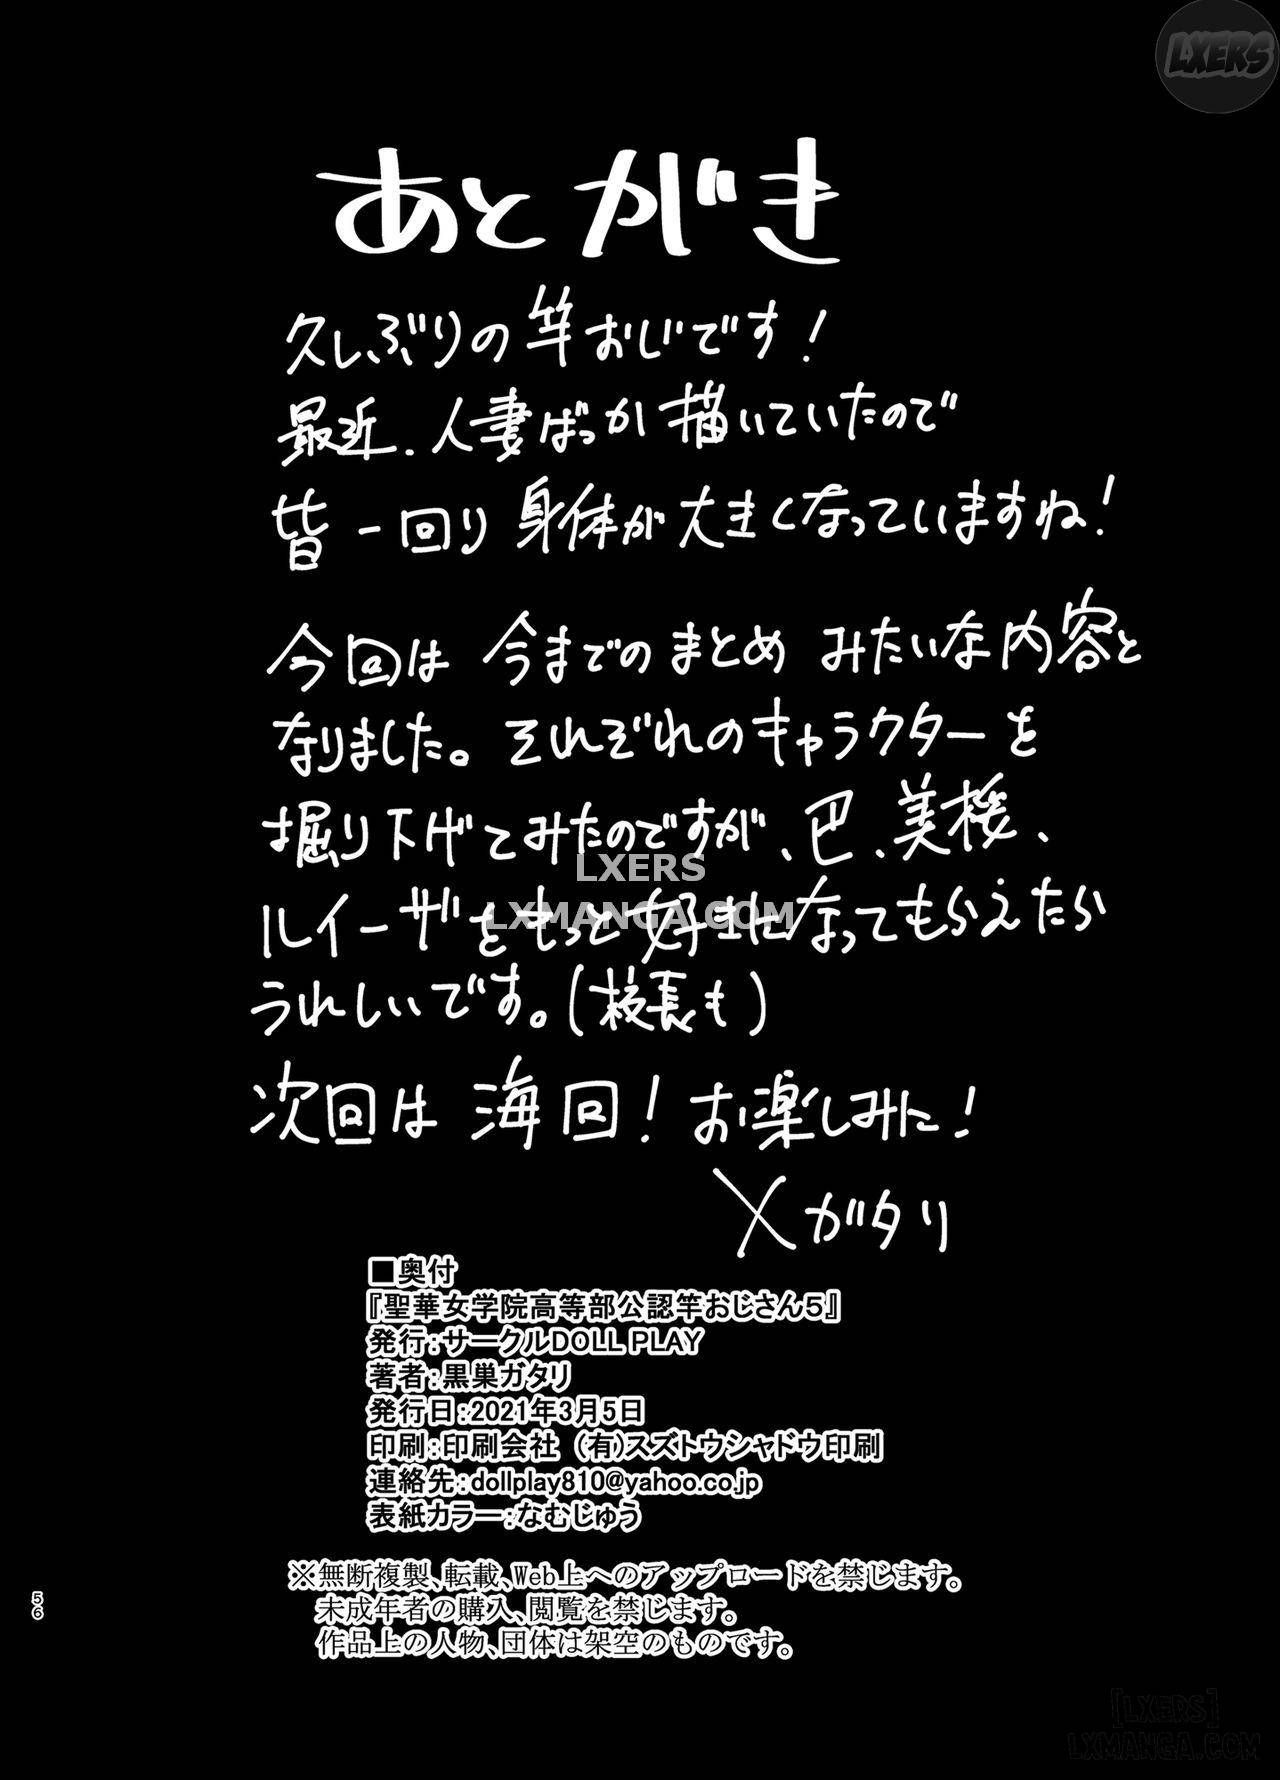 LXERS
あとがき
久しぶりの竿おじです!
最近、人妻ばっか描いていたので
皆一回り身体が大きくなっていますね!
今回は今までのまとめみたいな内容と
なりました。それぞれのキャラクターを
掘り下げてみたのですが、巴、美桜、
LXERS
ルイーザをもっと好きになってもらえたら
LXMANGA.COM
うれしいです。(校長も)
次回は海回!お楽しみに!
ガタリ
■奥付
『聖華女学院高等部公認竿おじさん5』
発行:サークルDOLL PLAY
著者:黒巣ガタリ
発行日:2021年3月5日
印刷:印刷会社 (有)スズトウシャドウ印刷
連絡先:dollplay810@yahoo.co.jp
表紙カラー:なむじゅう
※無断複製、転載、Web上へのアップロードを禁じます。
未成年者の購入、閲覧を禁じます。
作品上の人物、団体は架空のものです。
56
[LXERS]
LXMANGA.COM